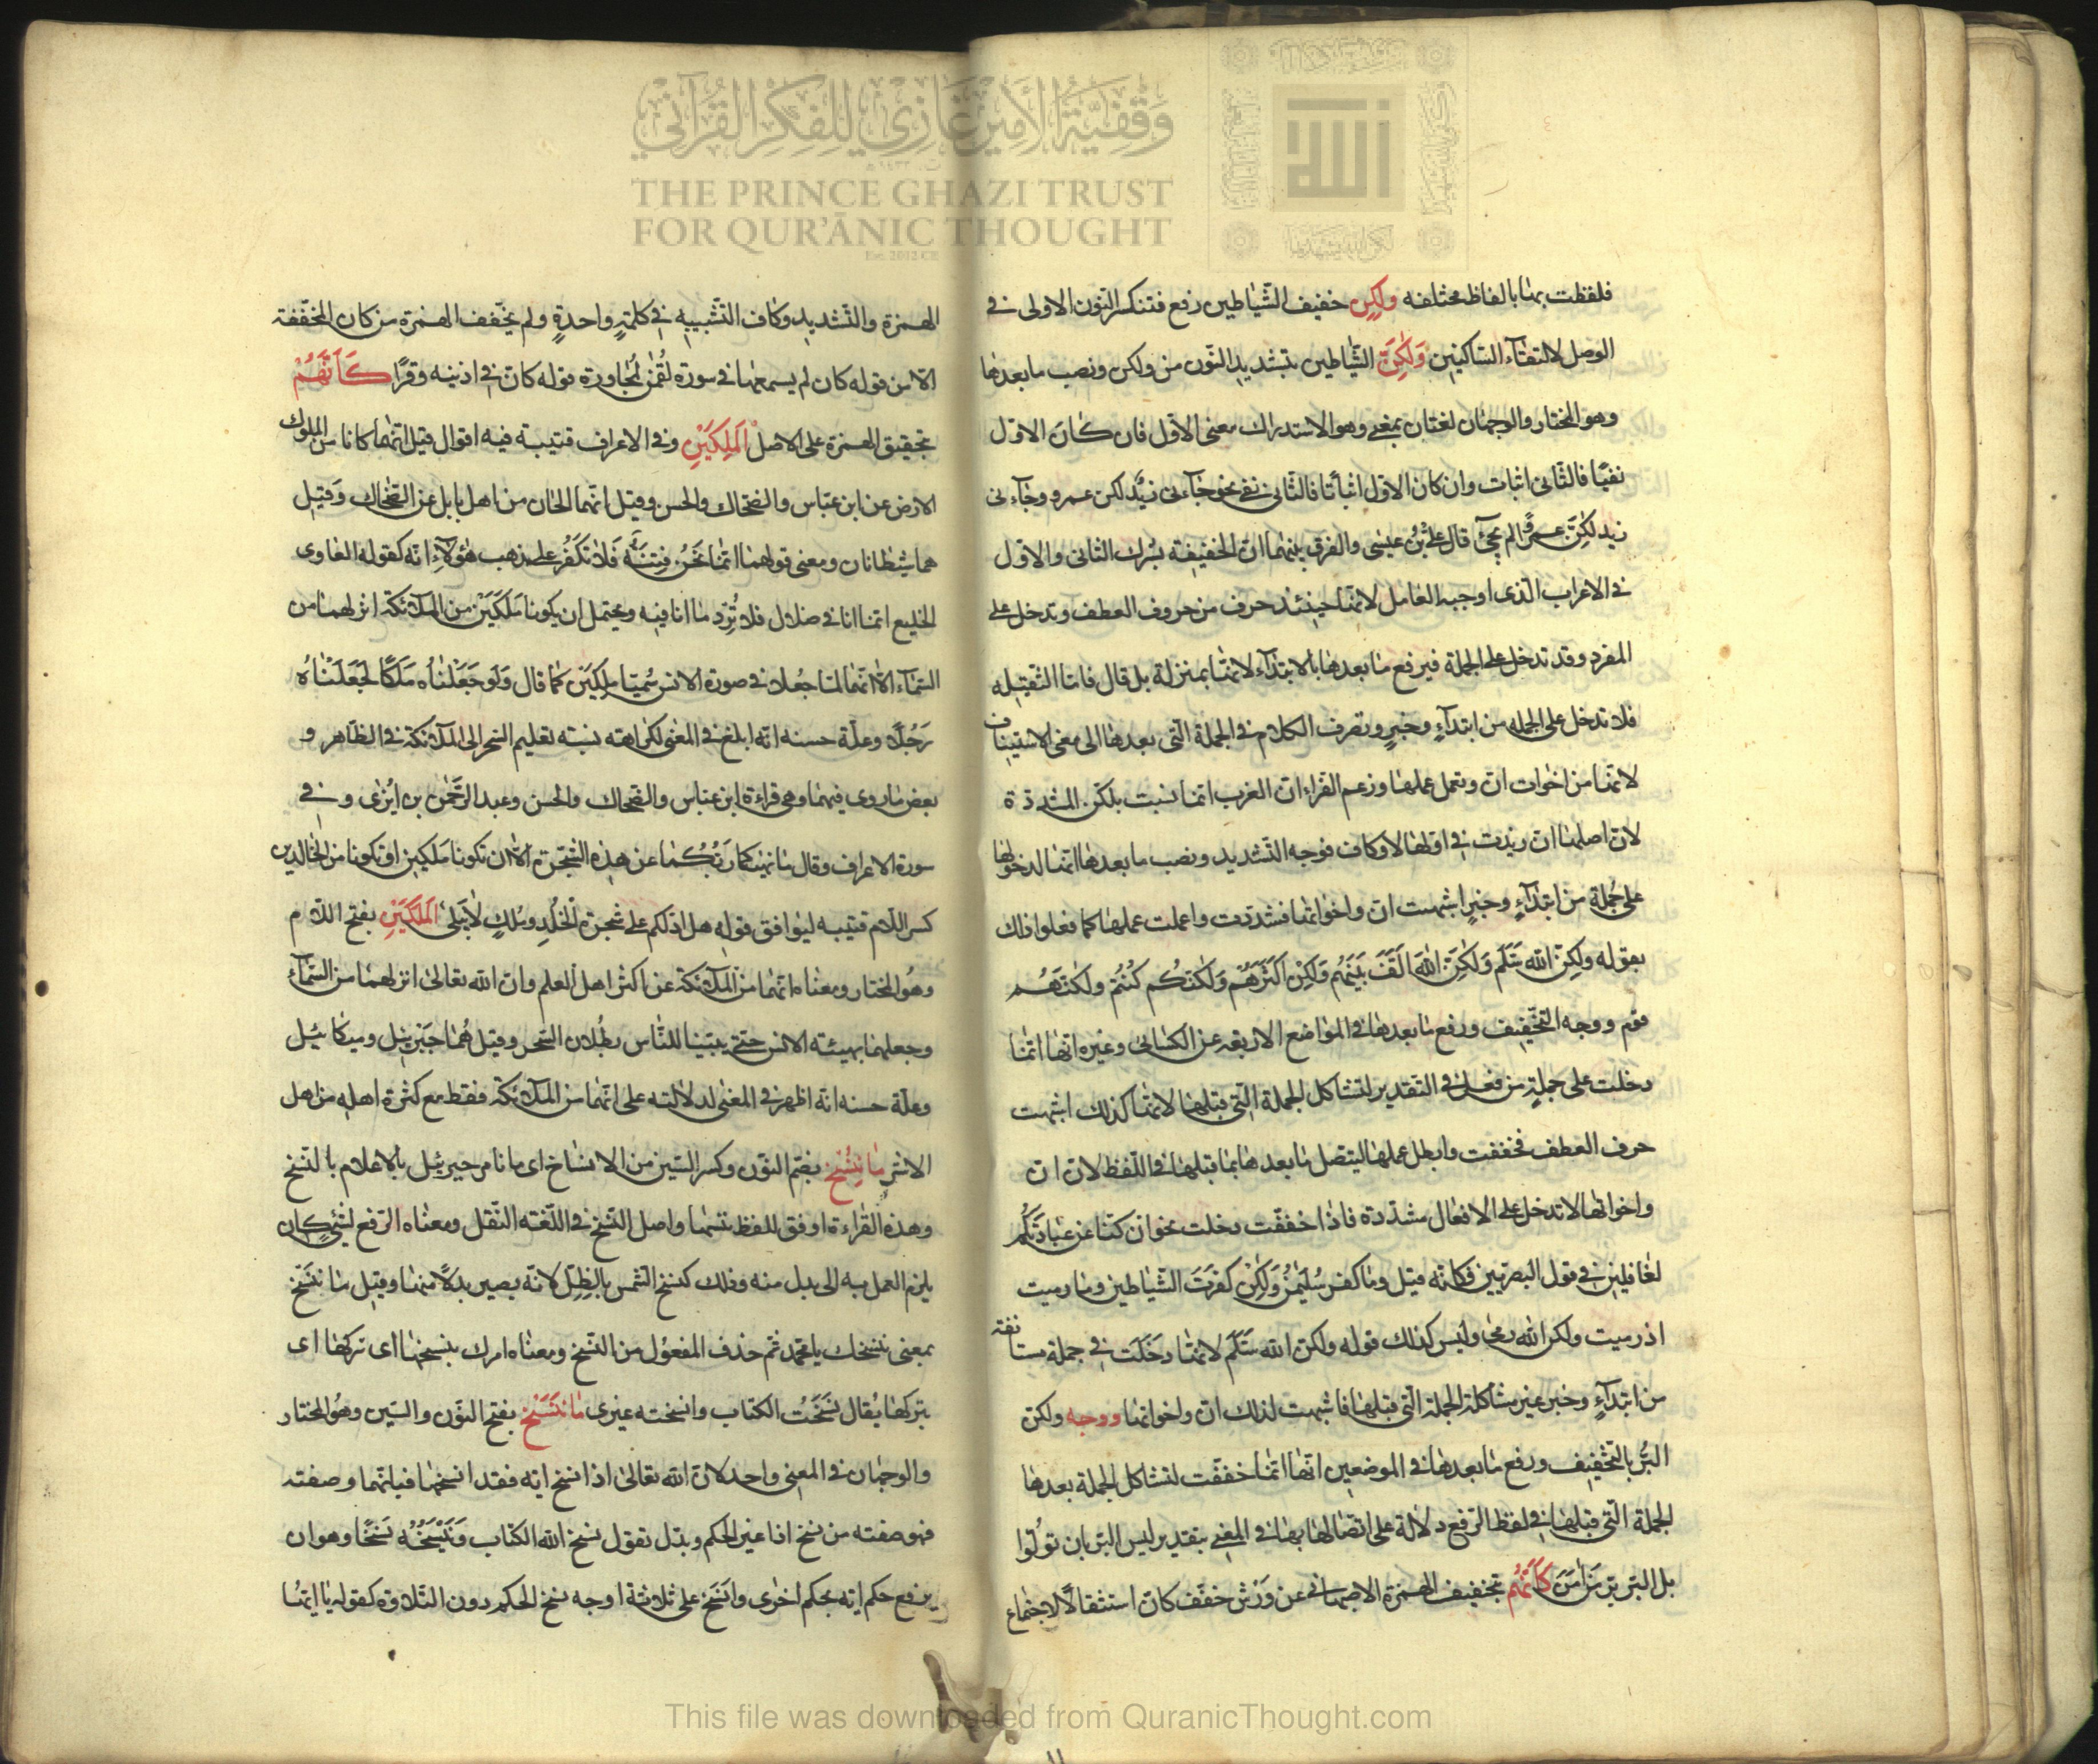 وَقْفِيَّةُ الأَمِيرْ غَازِي لِلْفِكْرِ القُرْآنِي
THE PRINCE GHAZI TRUST
FOR QUR'ĀNIC THOUGHT
Est. 2012 CE
الله
فلفظت بهنا بالفاظ مختلفه ولكن خفيف الشياطين رفع فتنكسر النون الاولى في
الوصل لالتقآء الساكنين وَلٰكِنَّ الشياطين بتشديد النون من ولكن ونصب ما بعدها
وهو المختار والوجهان لغتان بمعنى وهو الاستدراك معنى الاول فان كان الاول
نفيًا فالثانى اثبات وان كان الاول اثباتا فالثانى نفى نحو جآءنى زيد لكن عمرو وجآءنى
زيد لكن عمرو لم يجئ قال على بن عيسى والفرق بينهما ان الخفيفة يشرك الثانى والاول
في الاعراب الذى اوجبه العامل لانها حينئذ حرف من حروف العطف وتدخل على
المفرد وقد تدخل على الجملة فيرفع ما بعدها بالابتدآء لانها بمنزلة بل قال فاما الثقيله
فلا تدخل على الجمله من ابتدآء وخبر وتصرف الكلام في الجملة التى بعدها الى معنى الاستيناف
لانها من اخوات ان وتعمل عملها وزعم الفراء ان العرب انما نسبت بلكن المشددة
لان اصلها ان زيدت في اولها لا وكاف فوجه التشديد ونصب ما بعدها انما لدخولها
على جملة من ابتدآء وخبر اشبهت ان واخواتها فشددت واعملت عملها كما فعلوا ذلك
بقوله ولكن الله سَلَّم وَلٰكِنَّ الله اَلَّفَ بَيْنَهُم وَلٰكِنَّ اَكْثَرَهُم وَلٰكِنَّكُم كُنْتُم ولكنهم
قوم ووجه التخفيف ورفع ما بعدها في المواضع الاربعه عن الكسائى وغيره انها انما
دخلت على جملة من فعل في التقدير لتشاكل الجملة التى قبلها لانها كذلك اشبهت
حرف العطف فخففت وابطل عملها ليتصل ما بعدها بما قبلها في اللفظ لان ان
واخواتها لا تدخل على الافعال مشددة فاذا خففت دخلت نحو ان كنا عن عبادتكم
لغافلين في قول البصريين فكانه قيل وما كفر سُليمٰنُ وَلٰكِنْ كفرَتَ الشياطين وما رميت
اذ رميت ولكن الله رمى وليس كذلك قوله ولكن الله سَلَّم لانها دخلت في جملة مستانفة
من ابتدآء وخبر غير مشاكلة الجملة التى قبلها فاشبهت لذلك ان واخواتها ووجه ولكن
البُّر بالتخفيف ورفع ما بعدها في الموضعين انها انما خففت لتشاكل الجملة بعدها
الجملة التى قبلها في لفظ الرفع دلالة على اتصالها بها في المعنى بتقدير ليس البر بان تولّوا
بل البر بر من اٰمَنَ كَاَنَّهُم بتخفيف الهمزة الاصبهانى عن وَرْش خفف كان استثقالًا لاجتماع
الهمزة والتشديد وكاف التشبيه في كلمةٍ واحدةٍ ولم يخفف الهمزة من كان المخففة
الا من قوله كان لم يسمعها في سورة لقمٰن لمجاورة قوله كان في اذنيه وقرًا كَاَنَّهُمْ
بتحقيق الهمزة على الاصل اَلْمَلِكَيْنِ وفي الاعراف قتيبة فيه اقوال قيل انهما كانا من الملوك
الارض عن ابن عباس والضحاك والحسن وقيل انهما الخان من اهل بابل عن الضحاك وقيل
هما شيطانان ومعنى قولهما انما نَحْنُ فِتْنَةٌ فَلَا تَكْفُر على مذهب هٰؤلآءِ انه كقوله الغاوى
الخليع انما انا في ضلال فلا تُرِد ما انا فيه ويحتمل ان يكونا مَلَكَيْن من الملآئكة انزلهما من
السمآء الا انهما لما جعلا في صورة الانس سُميا ملِكَيْن كما قال وَلَو جَعَلْنٰاه مَلَكًا لَجَعَلْنٰاهُ
رَجُلًا وعلة حسنه انه ابلغ في المعنى لكراهته نسبة تعليم السحر الى الملآئكة في الظاهر و
بعض ما روى فيهما وهى قراءة ابن عباس والضحاك والحسن وعبد الرَّحمٰن بن ابزى و في
سورة الاعراف وقال ما نهيٰكما رَبُّكُمٰا عن هٰذه الشجرة الّا ان تكونا ملَكين او تكونا من الخالدين
كسر اللام قتيبه ليوافق قوله هل ادلكم على شجرة الخُلْدِ ومُلكٍ لا يَبلى اَلْمَلَكَيْنِ بفتح اللام
وهو المختار ومعناه انهما من الملآئكة عن اكثر اهل العلم وان الله تعالى انزلهما من السمآء
وجعلهما بهيئة الانس حتى يبينا للناس بطلان السحر وقيل هُما جَبْرئيل وميكائيل
وعلة حسنه انه اظهر في المعنى لدلالته على انهما من الملآئكة فقط مع كثرة اهله من اهل
الاثر مٰا نُنْسِخْ بضم النون وكسر السين من الانساخ اى ما نامر جبرئيل بالاعلام بالنسخ
وهذه القراءة اوفق للفظ ننسها واصل النسخ في اللغة النقل ومعناه الرفع لشئ كان
يلزم العمل به الى بدل منه وذلك كنسخ الشمس بالظِلِّ لانه يصير بدلًا منها وقيل مٰا نَنْسَخْ
بمعنى ننسخك يا محمد ثم حذف المفعول من النسخ ومعناه امرك بنسخها اى تركها اى
بتركها يُقال نَسَخْتُ الكتاب وانسخته غيرى مٰا نَنْسَخْ بفتح النون والسين وهو المختار
والوجهان في المعنى واحد لان الله تعالى اذا نسخ اية فقد انسخها فيانهما وصفته
فهو صفته من نسخ اذا غير الحكم وبدّل تقول نسخ الله الكتاب وَيَنْسَخُه نَسْخًا وهو ان
يرفع حكم اية بحكم اخرى والنسخ على ثلاثة اوجه نسخ الحكم دون التلاوة كقوله يا ايها
This file was downloaded from QuranicThought.com
١١